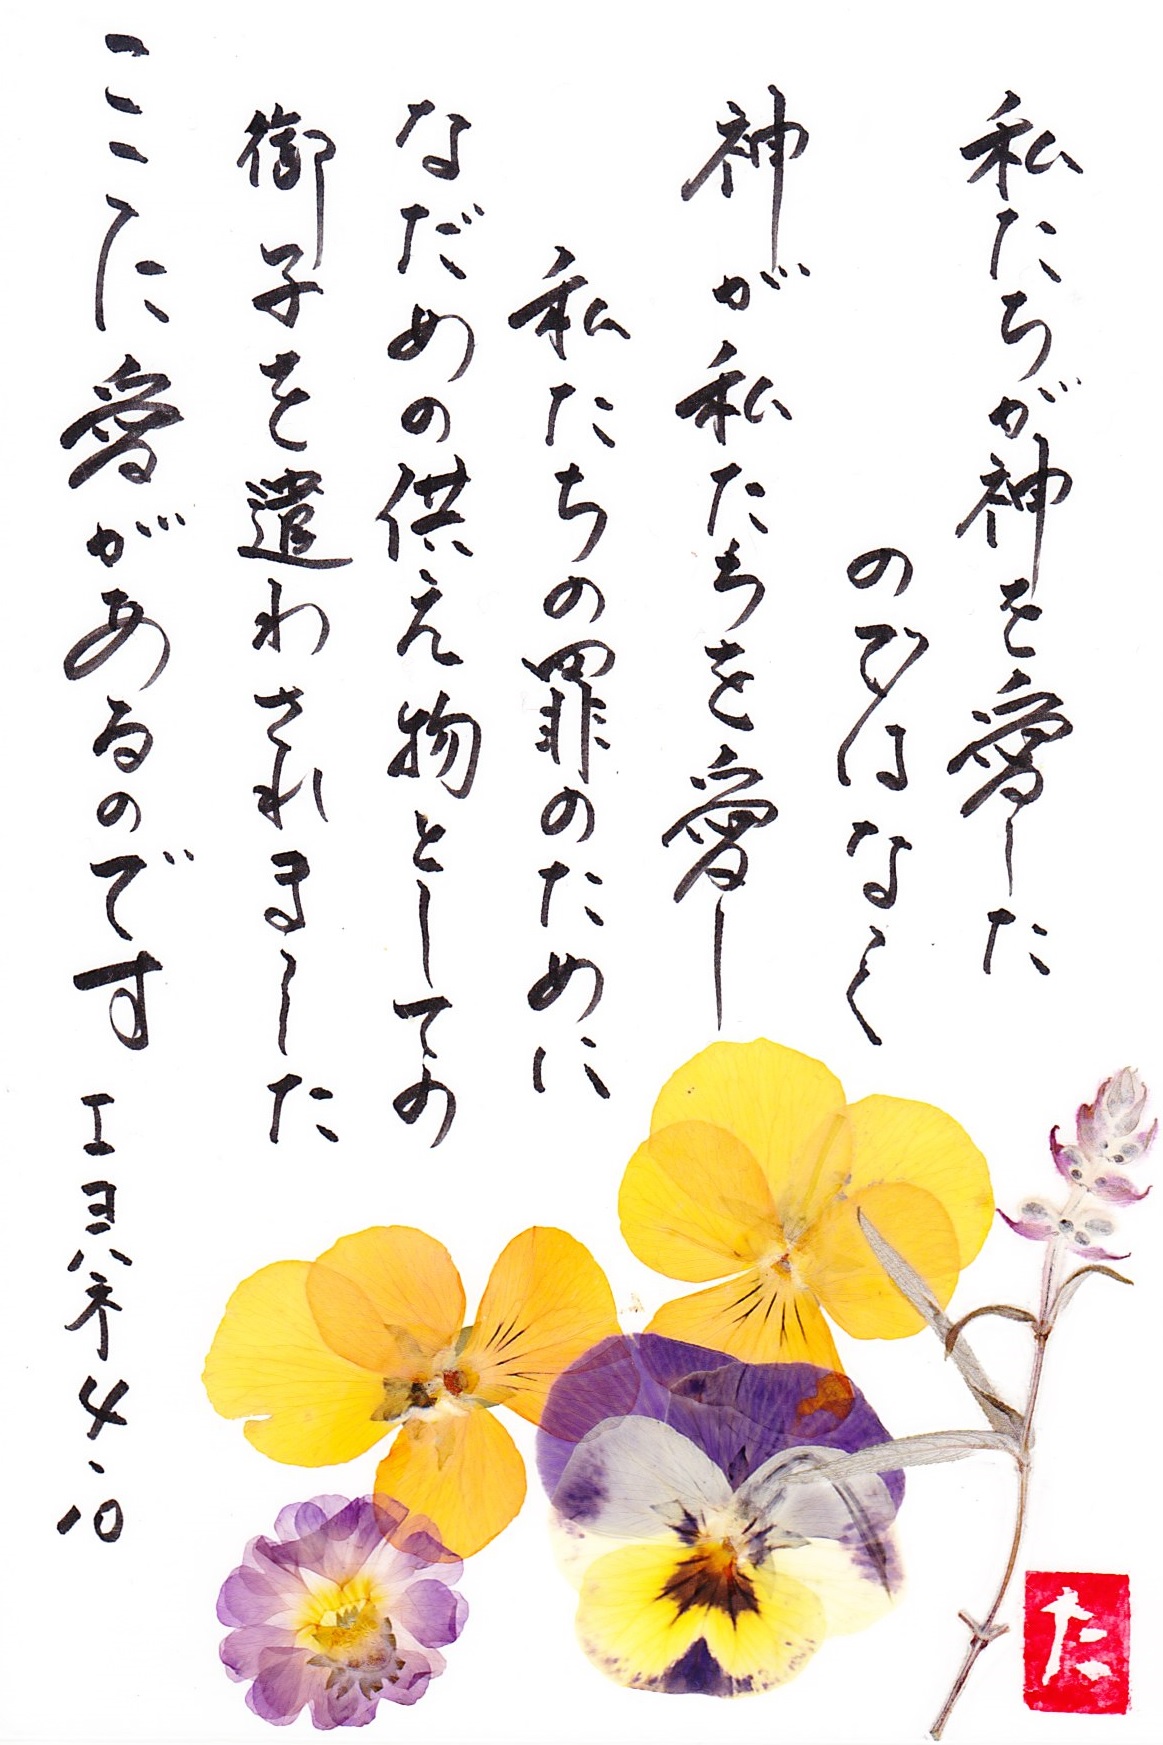 私たちが神を愛した
のではなく
神が私たちを愛し
私たちの罪のために
なだめの供え物としての
御子を遣わされました
ここに愛があるのです
Ⅰヨハネ4.10
た